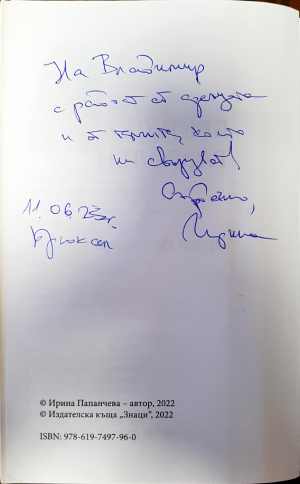 На Владимир
с радост от срещата
и от книгите, които
ни свързват!
Сърдечно,
Ирина
11.06.23г.
Брюксел
© Ирина Папанчева – автор, 2022
© Издателска къща „Знаци”, 2022
ISBN: 978-619-7497-96-0